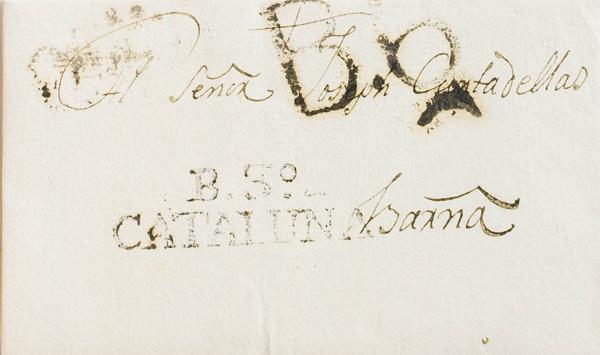 Al Señor Joseph Cantadellas
B.9
B. Sº.
CATALUNA Barna